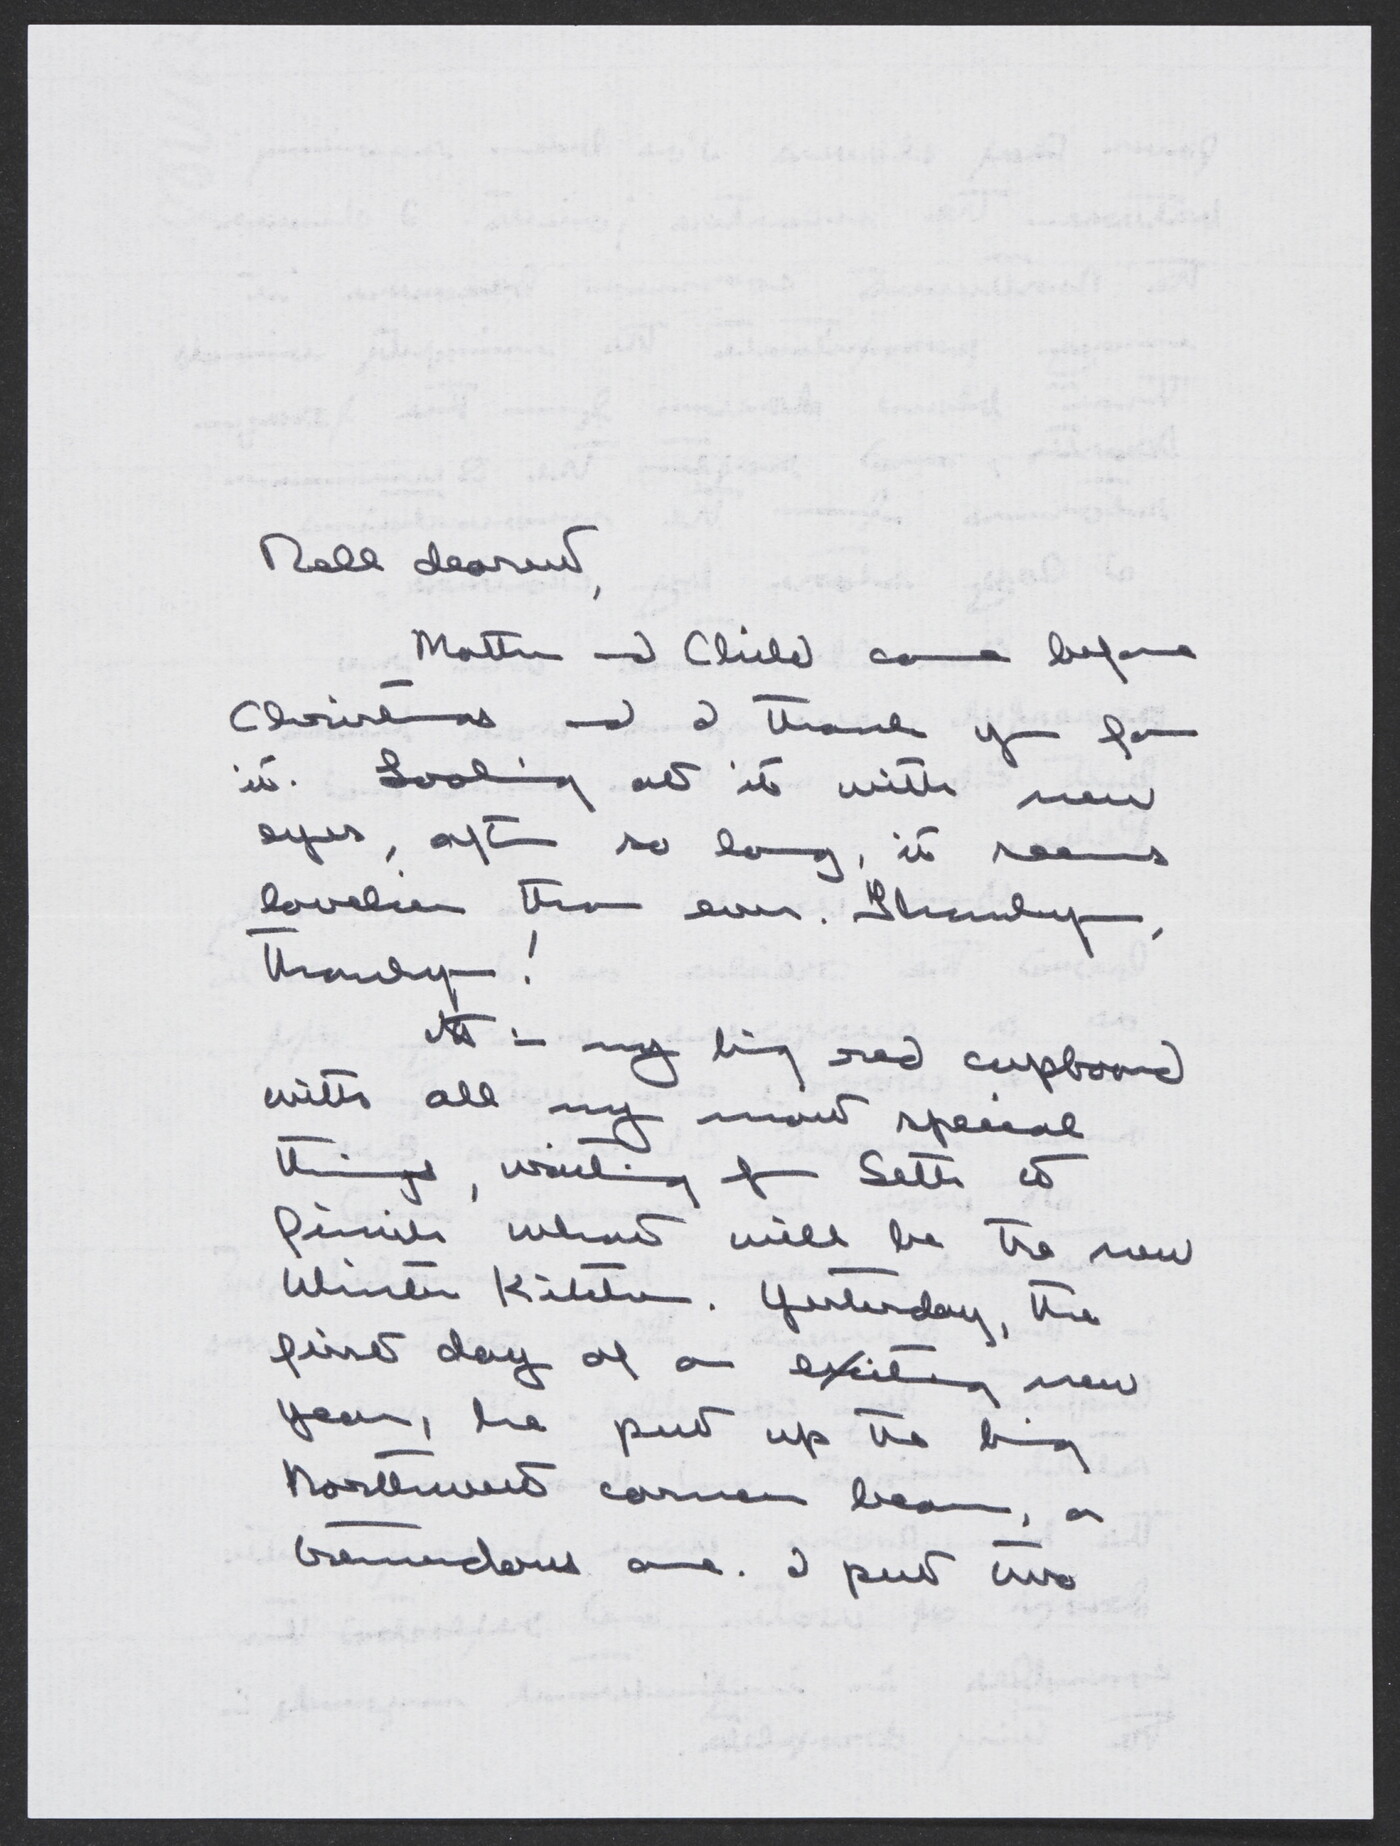 Nell dearest,
Mother and Child came before
Christmas and I thank you for
it. Looking at it with new
eyes, after so long, it seems
lovelier than ever. Thankyou,
Thankyou!
It is in my big red cupboard
with all my most special
things, waiting for Seth to
finish what will be the new
Winter Kitchen. Yesterday, the
first day of an exciting new
year, he put up the big
Northwest corner beam, a
tremendous one. I put two